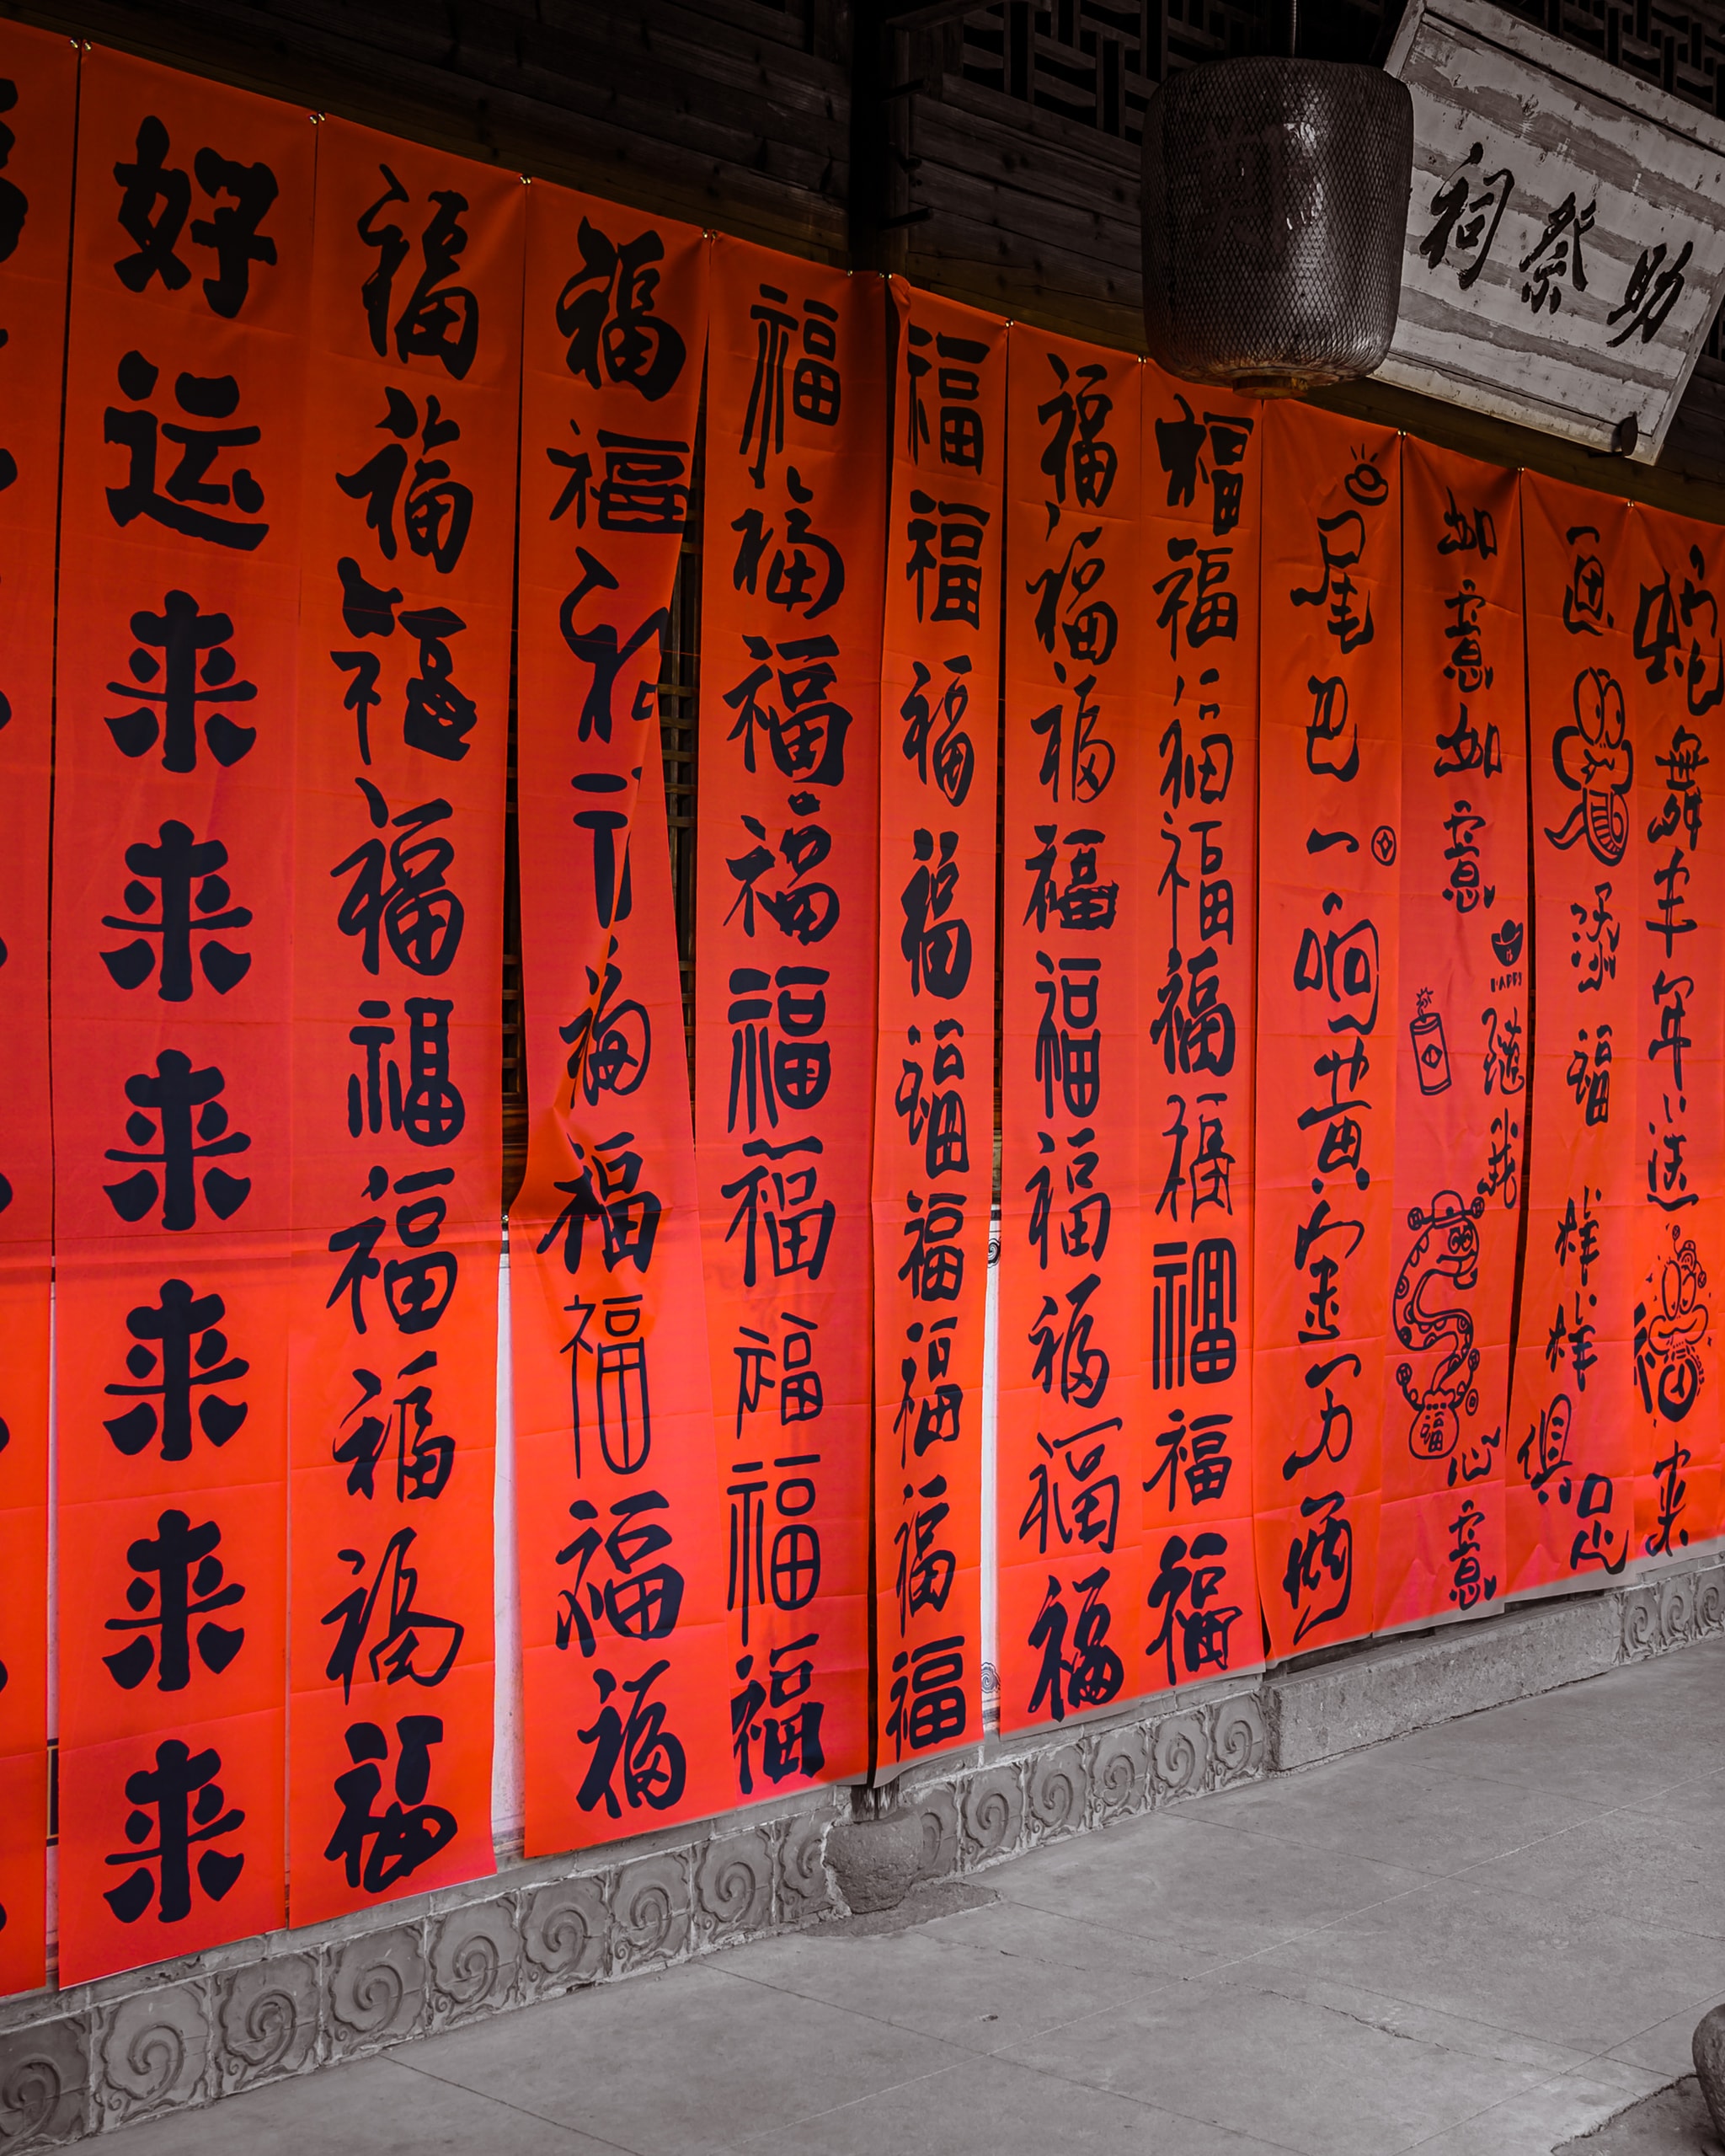 助祭祠
好运来来来来来来
福福福福福福福福福
福福福福福福福
福福福福福福福福福
福福福福福福福福福
福福福福福福福福福
福福福福福福福福福
尾巴一响黄金万两
如意如意
HAPPY
随我
福
心意
添福样样俱足
蛇舞丰年送福来